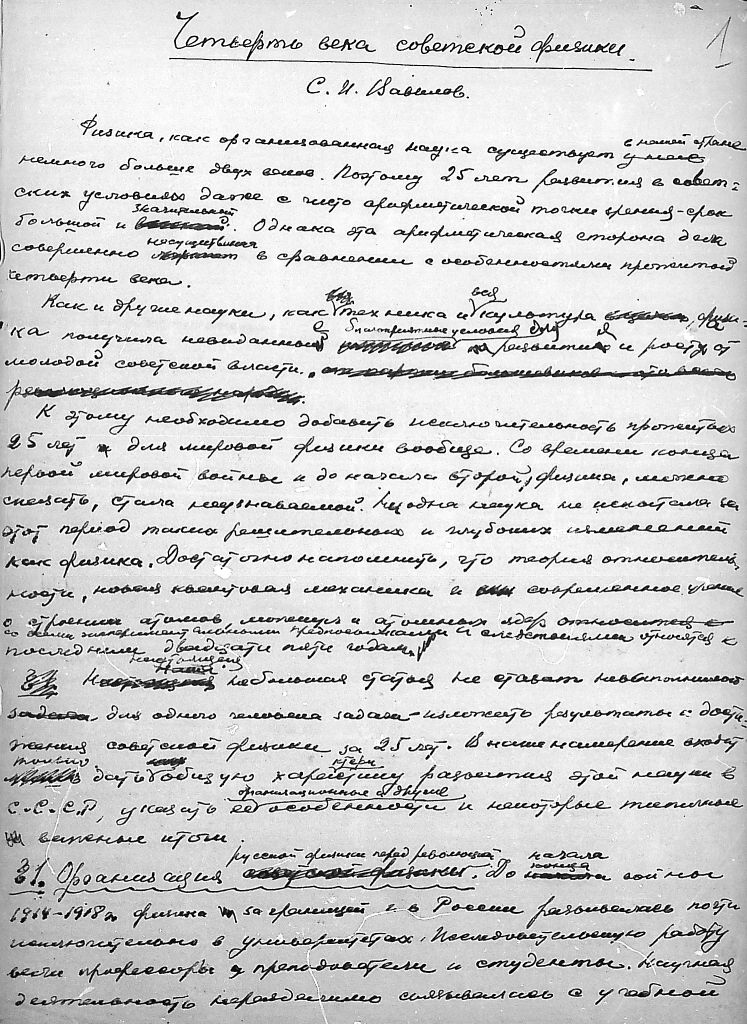 1
Четверть века советской физики.
С. И. Вавилов.
Физика, как организованная наука существует в нашей стране
немного больше двух веков. Поэтому 25 лет развития в совет-
ских условиях даже с чисто арифметической точки зрения - срок
большой и значительный. Однако эта арифметическая сторона дела
совершенно несущественна в сравнении с особенностями прожитой
четверти века.
Как и другие науки, как вся техника и вся культура, физи-
ка получила невиданные благоприятные условия для развития и роста от
молодой советской власти.
К этому необходимо добавить исключительность прожитых
25 лет для мировой физики вообще. Со времени конца
первой мировой войны и до начала второй, физика, можно
сказать, стала неузнаваемой. Ни одна наука не испытала за
этот период таких решительных и глубоких изменений
как физика. Достаточно напомнить, что теория относитель-
ности, новая квантовая механика и современное учение
о строении атомов, молекул и атомных ядер
со всеми экспериментальными предпосылками и следствиями относятся к
последним двадцати пяти годам.
Настоящая небольшая статья не ставит невыполнимой
для одного человека задачи - изложить результаты и дости-
жения советской физики за 25 лет. В наше намерение входит
только дать общую характеристику развития этой науки в
С.С.С.Р, указать ее организационные и другие особенности и некоторые типичные
важные итоги
§1. Организация русской физики перед революцией. До начала войны
1914-1918 г. физика за границей и в России развивалась почти
исключительно в университетах. Исследовательскую работу
вели профессоры, преподаватели и студенты. Научная
деятельность нераздельно связывалась с учебной